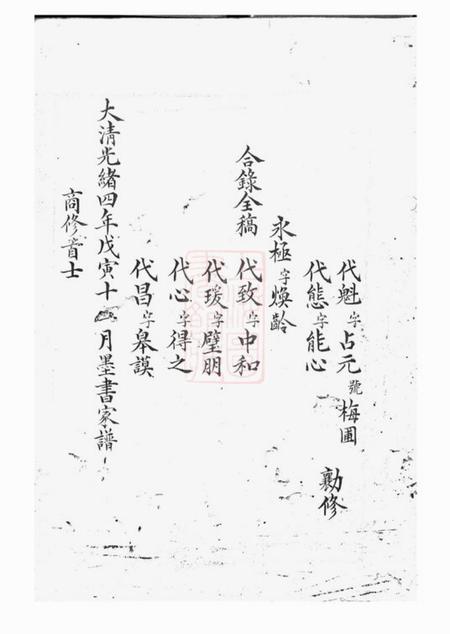 代魁字占元號梅圃
勷修
代態字能心
永極字煥齡
合錄全稿
代致字中和
代瑗字璧朋
代心字得之
代昌字皋謨
大清光緒四年戊寅十月墨書家譜
商修首士